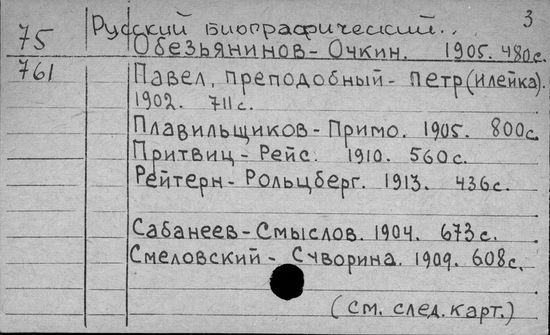 3
75 Русский биографический..
Обезьянинов - Очкин. 1905. 480с.
761 Павел, преподобный - Петр(илейка).
1902. 711с.
Плавильщиков - Примо. 1905. 800с.
Притвиц - Рейс. 1910. 560с.
Рейтерн - Рольцберг. 1913. 436с.
Сабанеев - Смыслов. 1904. 673с.
Смеловский - Суворина. 1909. 608с.
(см. след. карт.)